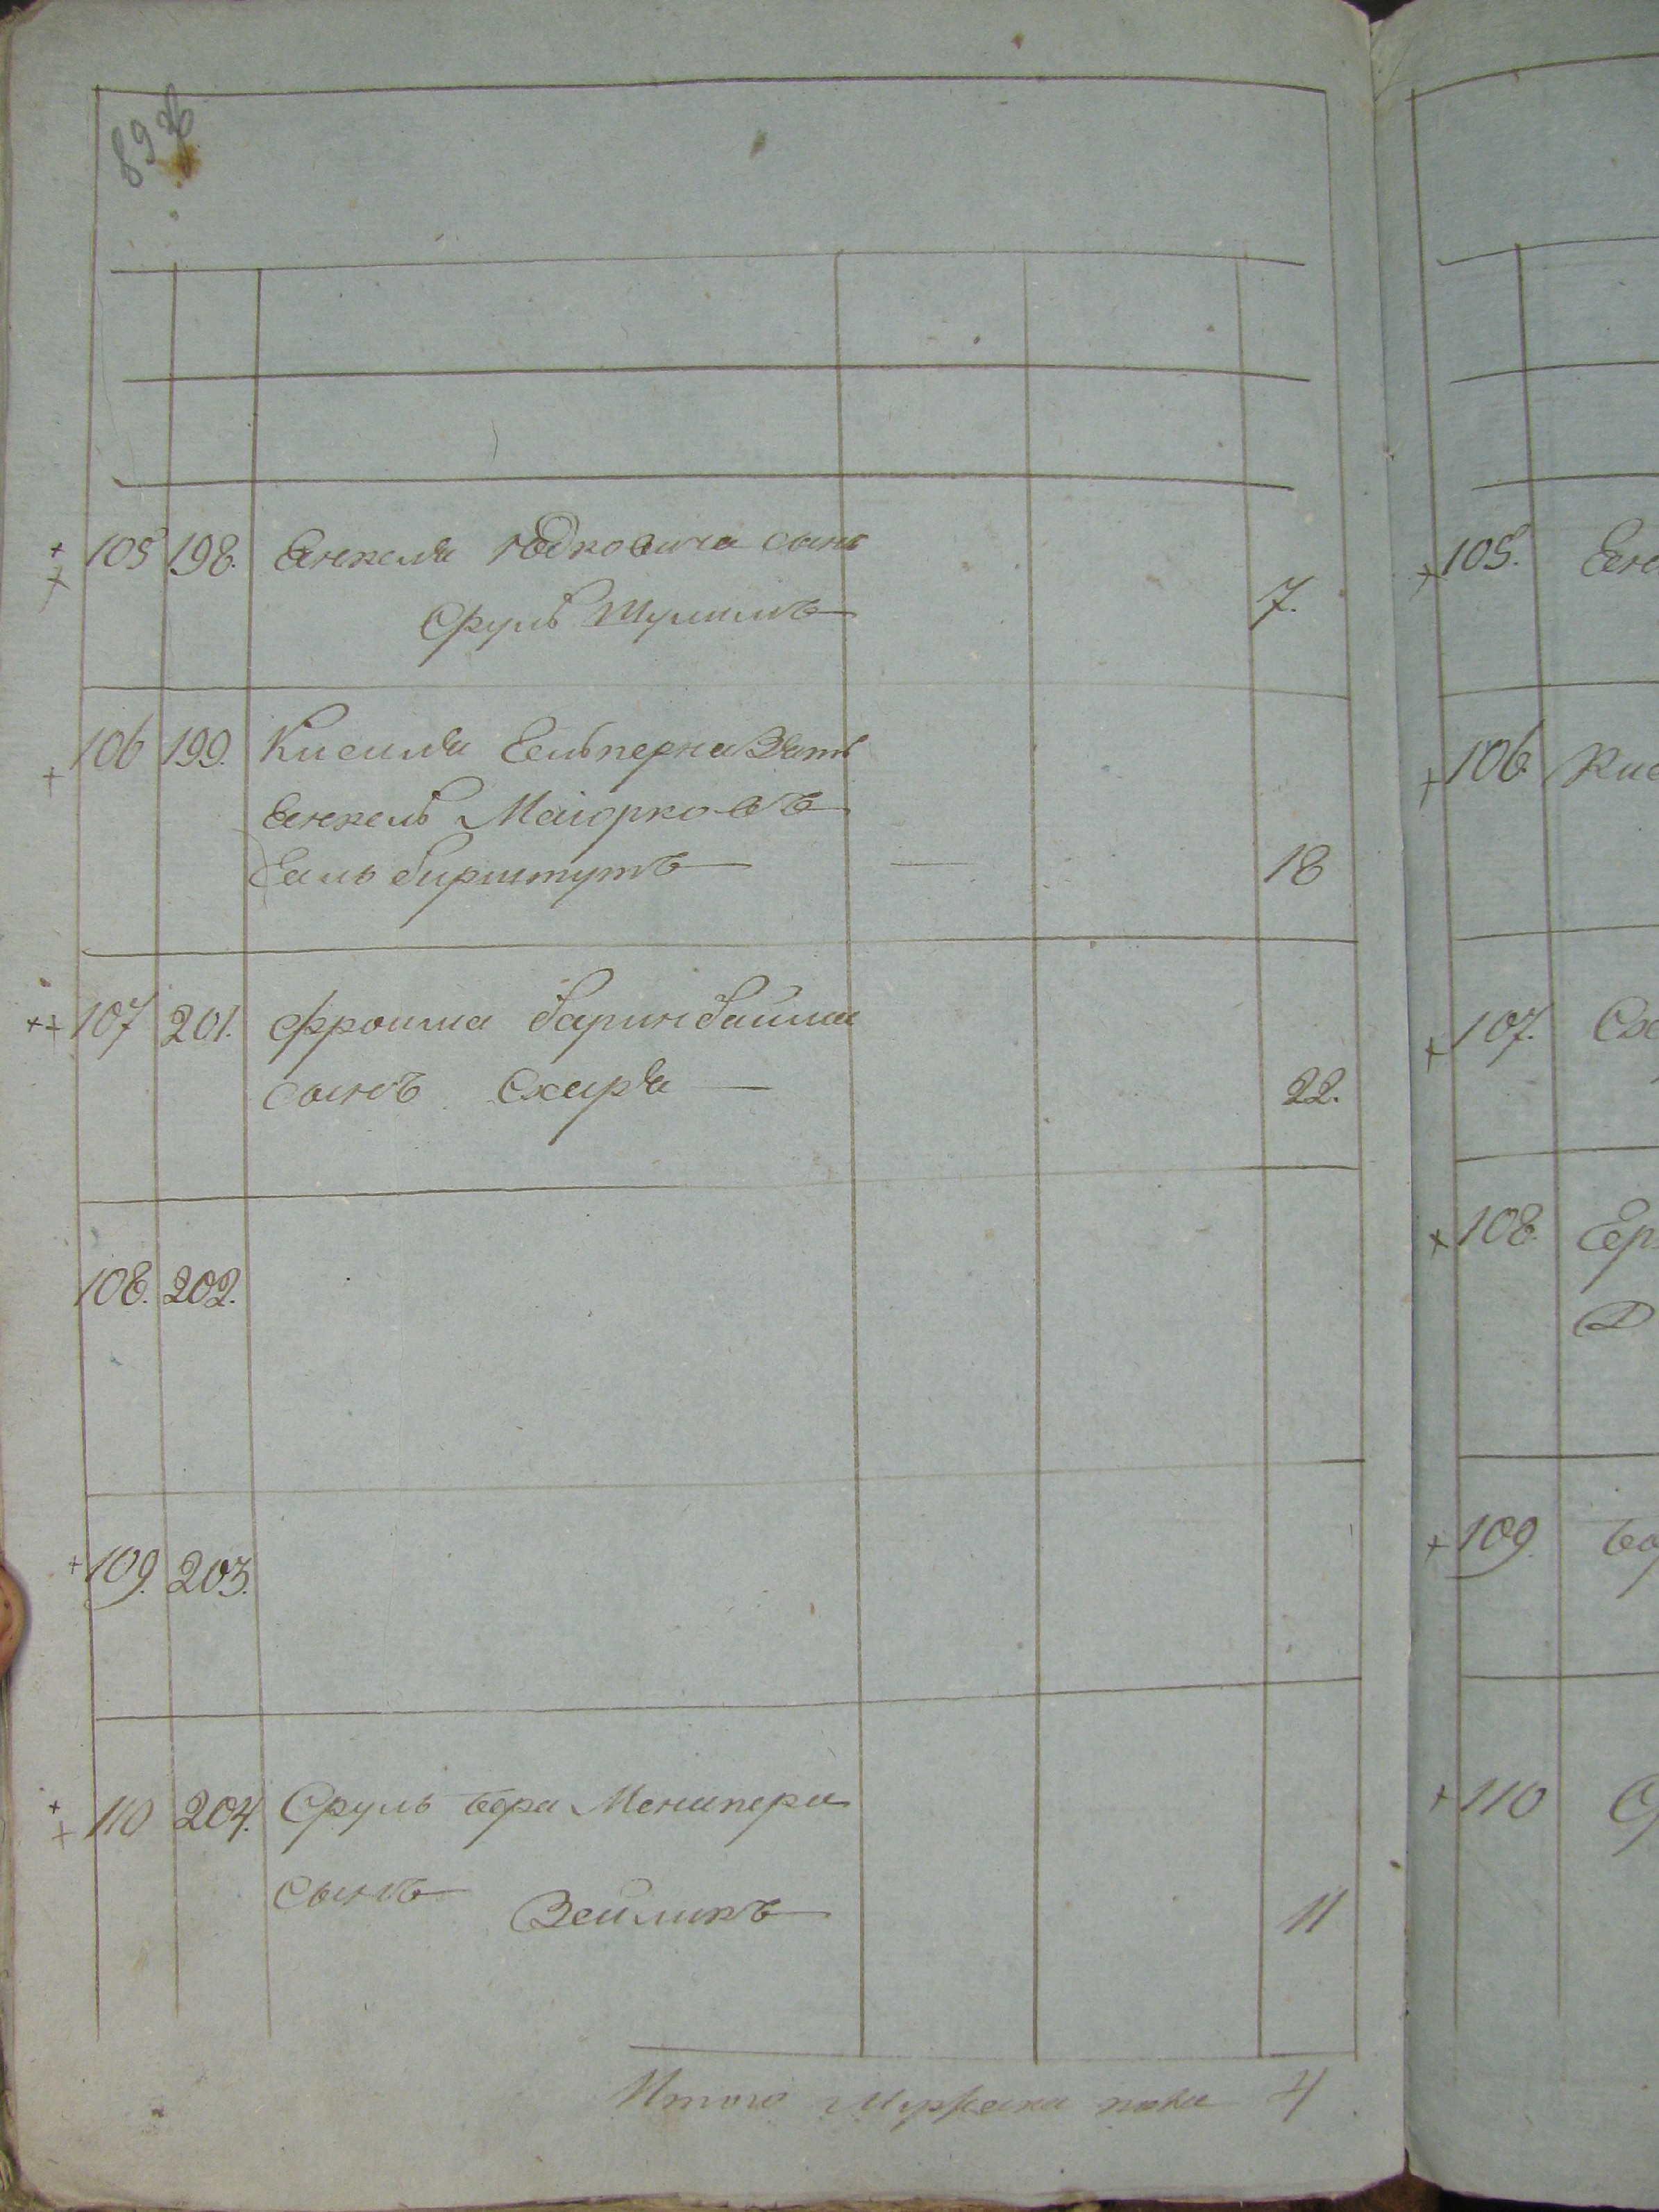 89 об
105 198. Енкеля Юдковича сынъ
Сруль Шулимъ 7.
106 199. Кисиля Гельперна Зять
Енкель Маіорковъ
Гань бирштутъ — 18
107 201. Фроима баринбайма
сынъ Схаріа — 22.
108. 202.
109. 203.
110 204. Сруль бера Менипера
сынъ Зейликъ 11
Итого мужеска пола 4
105. Енк
106. Кис
107. Сх
108. Гер
109. бо
110 С